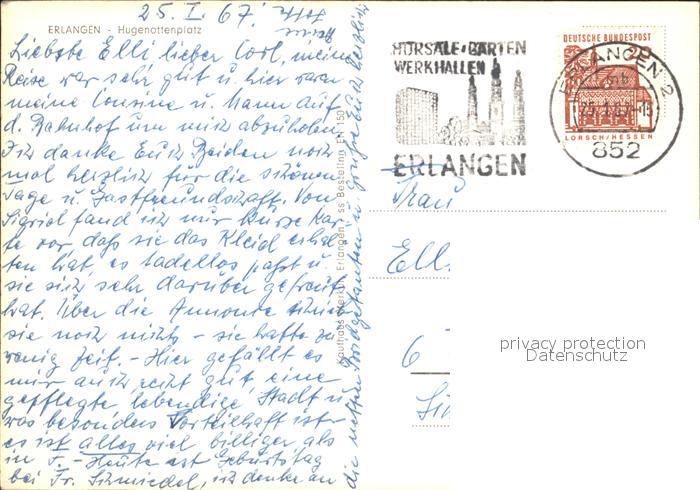 25. I. 67.
ERLANGEN - Hugenottenplatz
Liebste Elli, lieber Carl, meine
Reise war sehr gut u. hier waren
meine Cousine u. Mann auf
d. Bahnhof um mich abzuholen.
Ich danke Euch Beiden noch
mal herzlich für die schönen
Tage u. Gastfreundschaft. Von
Sigrid fand ich nur kurze Kar
te vor, daß sie das Kleid erhal
ten hat, es tadellos paßt u.
sie sich sehr darüber gefreut
hat. Über die Annonce
sie noch nichts - sie hatte zu
wenig Zeit. - Hier gefällt es
mir auch recht gut eine
gepflegte lebendige Stadt u.
was besonders vorteilhaft ist
es ist alles viel billiger als
in F. - Heute ist Geburtstag
bei Fr. Schmiedel, ich denke an
die netten
Kaufhaus Merkur, Erlangen
Bestellnr. EN 150
HÖRSÄLE·GÄRTEN
WERKHALLEN
ERLANGEN
DEUTSCHE BUNDESPOST
20
LORSCH/HESSEN
ERLANGEN 2
25.1.67-15
852
Frau
Ell
6
privacy protection
Datenschutz